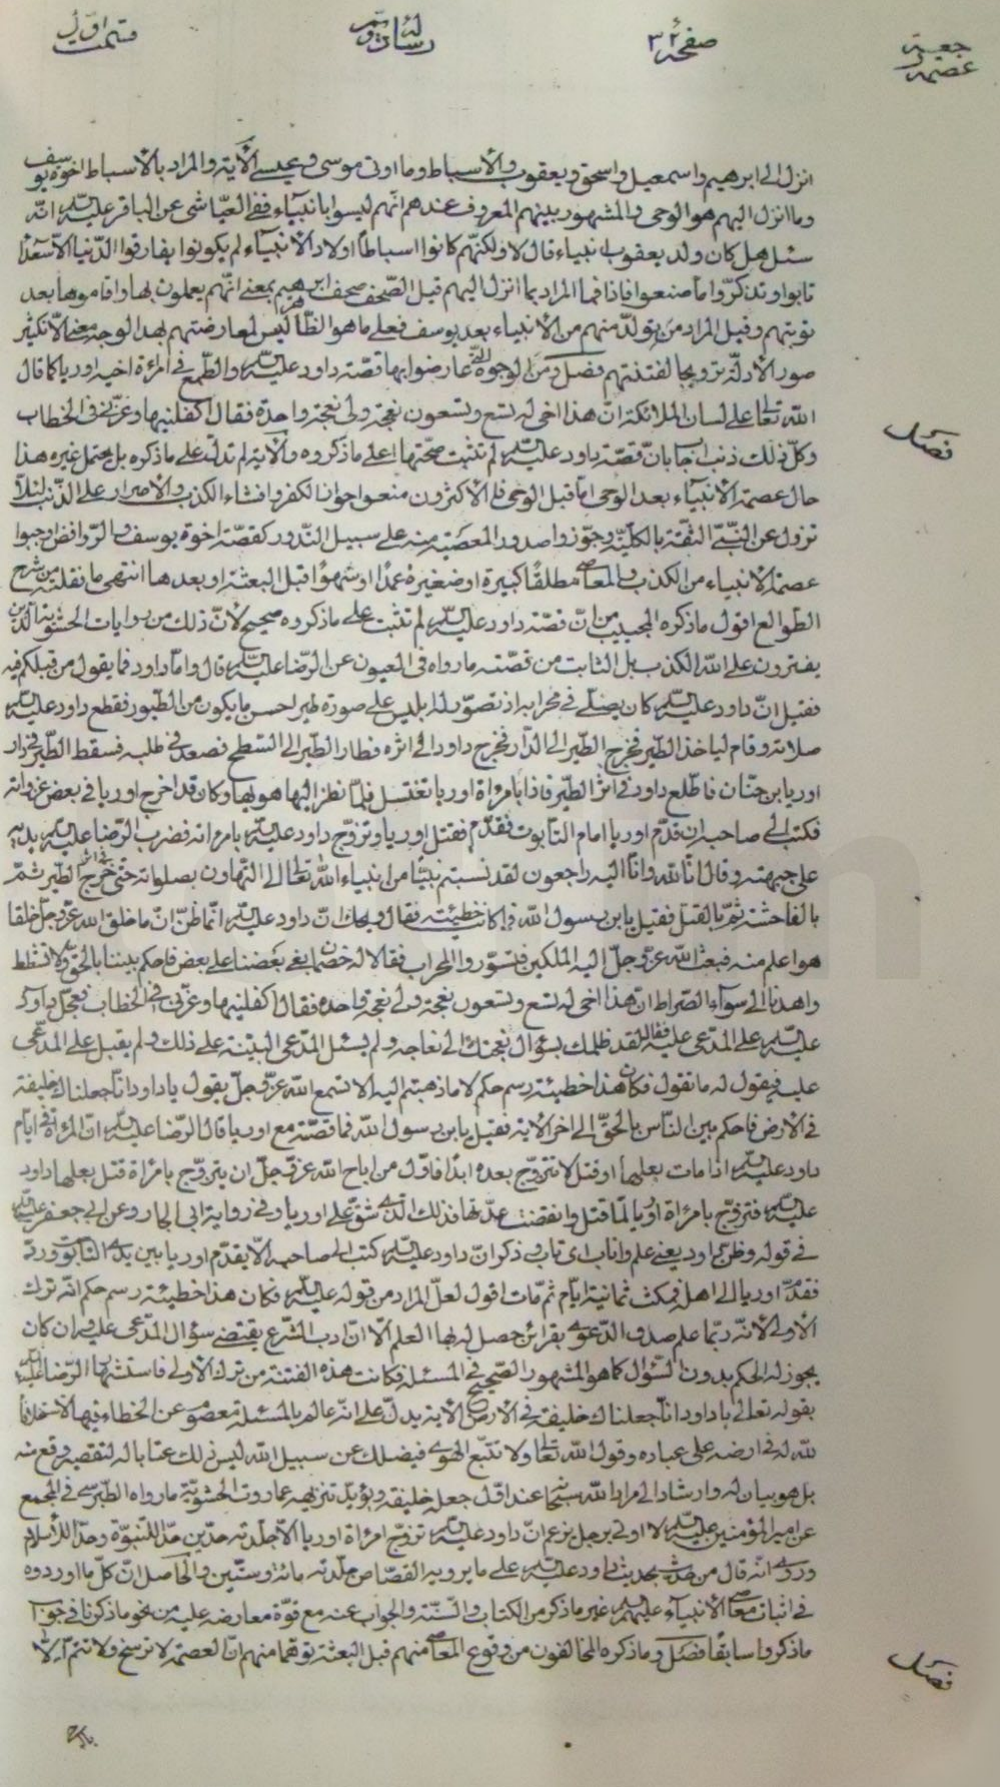 جعية عصمة
صفحة ٣٢
رسالة
قسمت اول
انزل الى ابرهيم واسمعيل واسحق ويعقوب والأسباط وما اوتى موسى وعيسى الأية والمراد بالأسباط اخوة يوسف
وما انزل اليهم هو الوحى والمشهور بينهم المعروف عندهم انهم ليسوا بانبياء ففى العياشى عن الباقر عليه السلام انه
سئل هل كان ولد يعقوب انبياء قال لا ولكنهم كانوا اسباطا اولاد الانبياء لم يكونوا يفارقوا الدنيا الا سعداء
تابوا وتذكروا ما صنعوا فاذا فما المراد بما انزل اليهم قيل الصحف صحف ابرهيم بمعنى انهم يعملون بها واقاموها بعد
توبتهم وقيل المراد من يتولد منهم من الأنبياء بعد يوسف فعلى ما هو الظاهر ليس لمعارضتهم بهذا الوجه معنى الا تكثير
صور الأدلة ترويجا لفتنتهم فصل ومن الوجوه التى عارضوا بها قصة داود عليه السلام والطمع فى امرءة اخيه اوريا كما قال
الله تعالى على لسان الملائكة ان هذا اخى له تسع وتسعون نعجة ولى نعجة واحدة فقال اكفلنيها وعزنى فى الخطاب
وكل ذلك ذنب اجابا بان قصة داود عليه السلام لم تثبت صحتها على ما ذكروه والأية لم تدل على ما ذكره بل يحتمل غيره هذا
حال عصمة الأنبياء بعد الوحى اما قبل الوحى فالأكثرون منعوا جواز الكفر وافشاء الكذب والأصرار على الذنب لئلا
تزول عن النبى الثقة بالكلية وجوزوا صدور المعصية منه على سبيل الندور كقصة اخوة يوسف والروافض وجبوا
عصمة الانبياء من الكذب والمعاصى مطلقا كبيرة او صغيرة عمدا او سهوا قبل البعثة او بعدها انتهى ما نقلته من شرح
الطوالع اقول ما ذكره المجيب من ان قصة داود عليه السلام لم تثبت على ما ذكروه صحيح لأن ذلك من روايات الحشوية الذين
يفترون على الله الكذب بل الثابت من قصته ما رواه فى العيون عن الرضا عليه السلام قال واما داود فما يقول من قبلكم فيه
فقيل ان داود عليه السلام كان يصلى فى محرابه اذ تصور له ابليس على صورة طير احسن ما يكون من الطيور فقطع داود عليه السلام
صلاته وقام لياخذ الطير فخرج الطير الى الدار فخرج داود فى اثره فطار الطير الى السطح فصعد فى طلبه فسقط الطير فى دار
اوريا بن حنان فاطلع داود فى اثر الطير فاذا بامرءة اوريا تغتسل فلما نظر اليها هويها وكان قد اخرج اوريا فى بعض غزواته
فكتب الى صاحبه ان قدم اوريا امام التابوت فقدم فقتل اوريا وتزوج داود عليه السلام بامرءته فضرب الرضا عليه السلام بيده
على جبهته وقال انا لله وانا اليه راجعون لقد نسبتم نبيا من انبياء الله تعالى الى التهاون بصلواته حتى خرج فى اثر الطير ثم
بالفاحشة ثم بالقتل فقيل يا بن رسول الله فما كانت خطيئته فقال ويحك ان داود عليه السلام انما ظن ان ما خلق الله عز وجل خلقا
هو اعلم منه فبعث الله عز وجل اليه الملكين فتسوروا المحراب فقالا له خصمان بغى بعضنا على بعض فاحكم بيننا بالحق ولا تشطط
واهدنا الى سواء الصراط ان هذا اخى له تسع وتسعون نعجة ولى نعجة واحدة فقال اكفلنيها وعزنى فى الخطاب فعجل داود
عليه السلام على المدعى عليه فقال لقد ظلمك بسؤال نعجتك الى نعاجه ولم يسئل المدعى البينة على ذلك ولم يقبل على المدعى
عليه فيقول له ما تقول فكان هذا خطيئة رسم حكم لا ما ذهبتم اليه الا تسمع الله عز وجل يقول يا داود انا جعلناك خليفة
فى الأرض فاحكم بين الناس بالحق الى اخر الأية فقيل يا بن رسول الله فما قصته مع اوريا قال الرضا عليه السلام ان المرءة فى ايام
داود عليه السلام اذا مات بعلها او قتل لا تتزوج بعده ابدا فاول من اباح الله عز وجل ان يتزوج بامرءة قتل بعلها داود
عليه السلام فتزوج بامرءة اوريا لما قتل وانقضت عدتها فذلك الذى شق على اوريا وفى رواية ابى الجارود عن ابى جعفر عليه السلام
فى قوله وظن داود يعنى علم واناب اى تاب وذكر ان داود عليه السلام كتب الى صاحبه الا يقدم اوريا بين يدى التابوت ورده
فقدم اوريا الى اهله فمكث ثمانية ايام ثم مات اقول لعل المراد من قوله عليه السلام فكان هذا خطيئة رسم حكم انه ترك
الأولى لأنه ربما علم صدق الدعوى بقرائن حصل له بها العلم الا ان ادب الشرع يقتضى سؤال المدعى عليه وان كان
يجوز له الحكم بدون السؤال كما هو المشهور الصحيح فى المسئلة فكانت هذه الفتنة من ترك الأولى فاستشهد الرضا عليه السلام
بقوله تعالى يا داود انا جعلناك خليفة فى الأرض الأية يدل على انه عالم بالمسئلة معصوم عن الخطاء فيها لأستخلاف
لله له فى ارضه على عباده وقول الله تعالى ولا تتبع الهوى فيضلك عن سبيل الله ليس ذلك عتابا له لتقصير وقع منه
بل هو بيان له وارشاد الى مراد الله سبحانه عند اول جعله خليفة ويؤيد تنزيهه عما روت الحشوية ما رواه الطبرسى فى المجمع
عن امير المؤمنين عليه السلام لا اوتى برجل يزعم ان داود عليه السلام تزوج امرءة اوريا الا جلدته حدين حدا للنبوة وحدا للأسلام
وروى انه قال من حدث بحديث داود عليه السلام على ما يرويه القصاص جلدته مائة وستين والحاصل ان كل ما اوردوه
فى اثبات معاصى الأنبياء عليهم السلام غير ما ذكر من الكتاب والسنة والجواب عنه مع قوة معارضه عليه من نحو ما ذكرنا فى جواب
ما ذكروا سابقا فصل وما ذكره المخالفون من وقوع المعاصى منهم قبل البعثة توهما منهم ان العصمة لا ترسخ ولا تتم الا
فصل
فصل